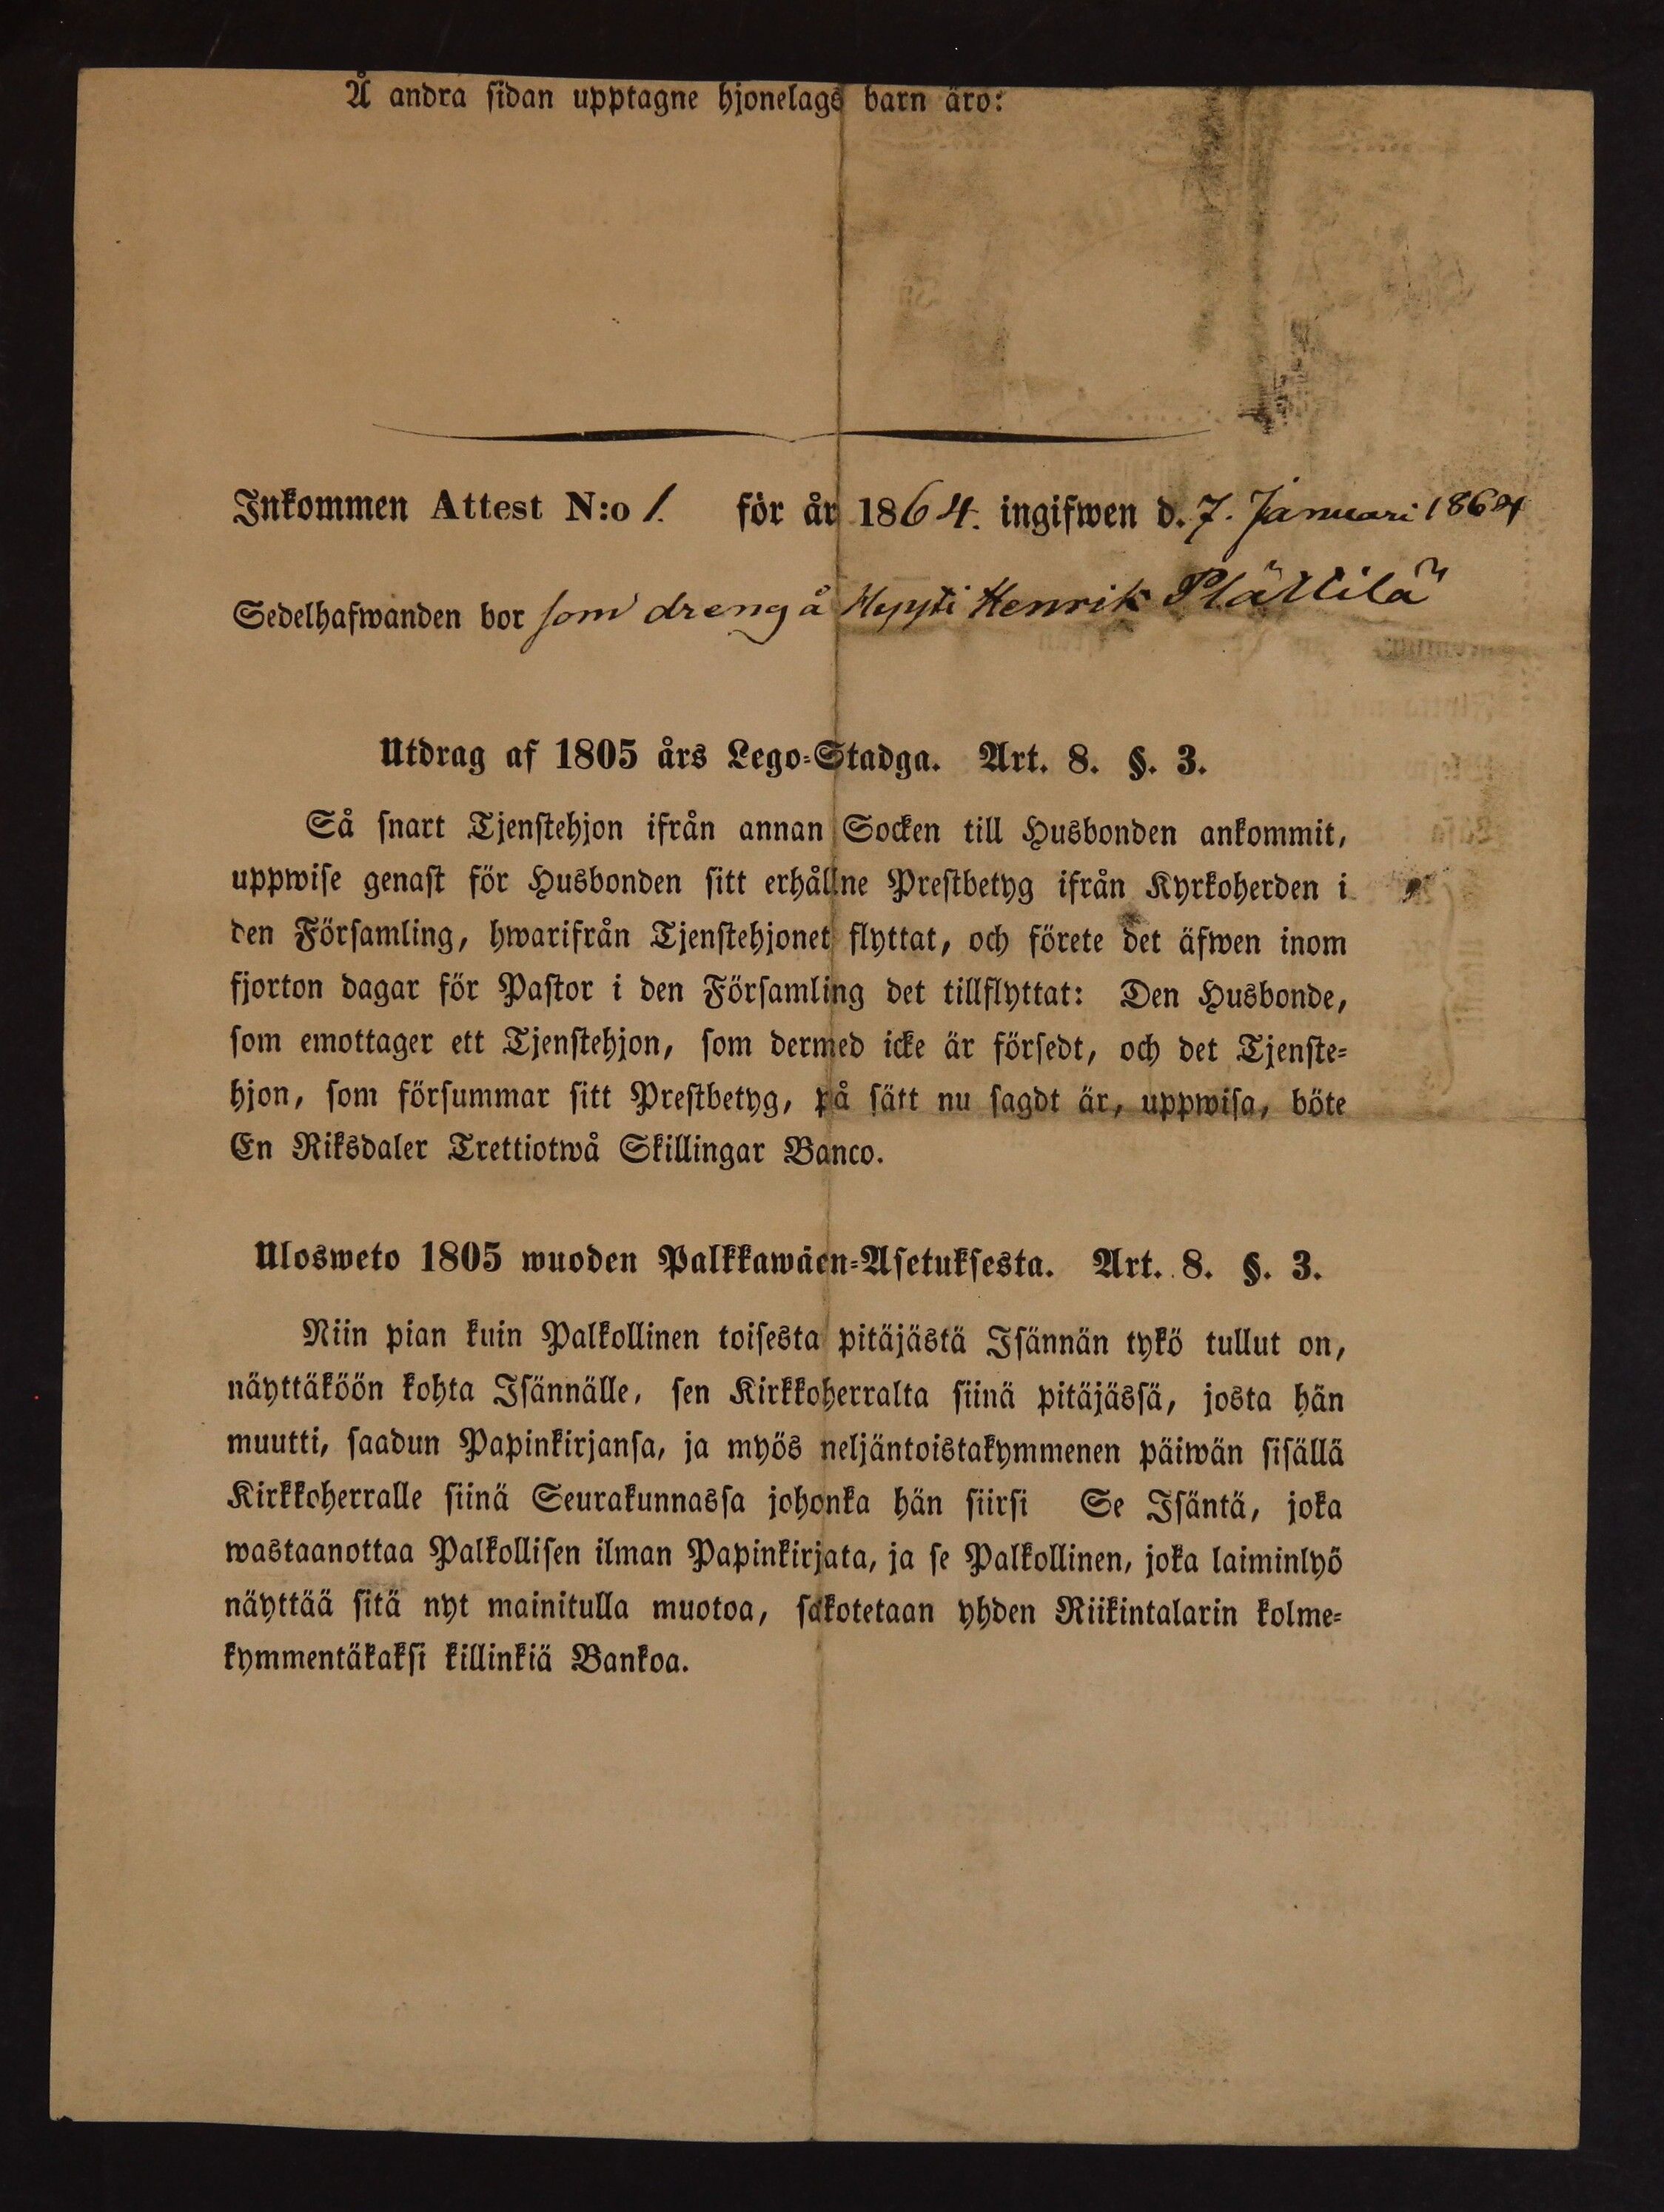 Å andra sidan upptagne hjonelags barn äro:
Inkommen Attest N:o 1. för år 1864. ingifwen d. 7. Januari 1864
Sedelhafwanden bor som dreng å Hyyti Henrik Plättilä
Utdrag af 1805 års Lego-Stadga. Art. 8. §. 3.
Så snart Tjenstehjon ifrån annan Socken till Husbonden ankommit,
uppwise genast för Husbonden sitt erhållne Prestbetyg ifrån Kyrkoherden i
den Församling, hwarifrån Tjenstehjonet flyttat, och förete det äfwen inom
fjorton dagar för Pastor i den Församling det tillflyttat: Den Husbonde,
som emottager ett Tjenstehjon, som dermed icke är försedt, och det Tjenste-
hjon, som försummar sitt Prestbetyg, på sätt nu sagdt är, uppwisa, böte
En Riksdaler Trettiotwå Skillingar Banco.
Ulosweto 1805 wuoden Palkkawäen-Asetuksesta. Art. 8. §. 3.
Niin pian kuin Palkollinen toisesta pitäjästä Isännän tykö tullut on,
näyttäköön kohta Isännälle, sen Kirkkoherralta siinä pitäjässä, josta hän
muutti, saadun Papinkirjansa, ja myös neljäntoistakymmenen päiwän sisällä
Kirkkoherralle siinä Seurakunnassa johonka hän siirsi Se Isäntä, joka
wastaanottaa Palkollisen ilman Papinkirjata, ja se Palkollinen, joka laiminlyö
näyttää sitä nyt mainitulla muotoa, sakotetaan yhden Riikintalarin kolme-
kymmentäkaksi killinkiä Bankoa.